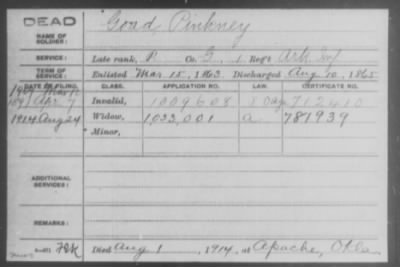 DEAD
NAME OF SOLDIER:
Goad, Pinkney
SERVICE:
Late rank, P Co. G, 1 Reg't Ark Inf
TERM OF SERVICE:
Enlisted Mar 15, 1863 Discharged Aug 10, 1865
DATE OF FILING. CLASS. APPLICATION NO. LAW. CERTIFICATE NO.
1891 Apr 7 Invalid, 1009608 712410
1914 Aug 24 Widow, 1033,001 a. 787939
Minor,
ADDITIONAL SERVICES:
REMARKS:
Died Aug 1, 1914, at Apache, Okla